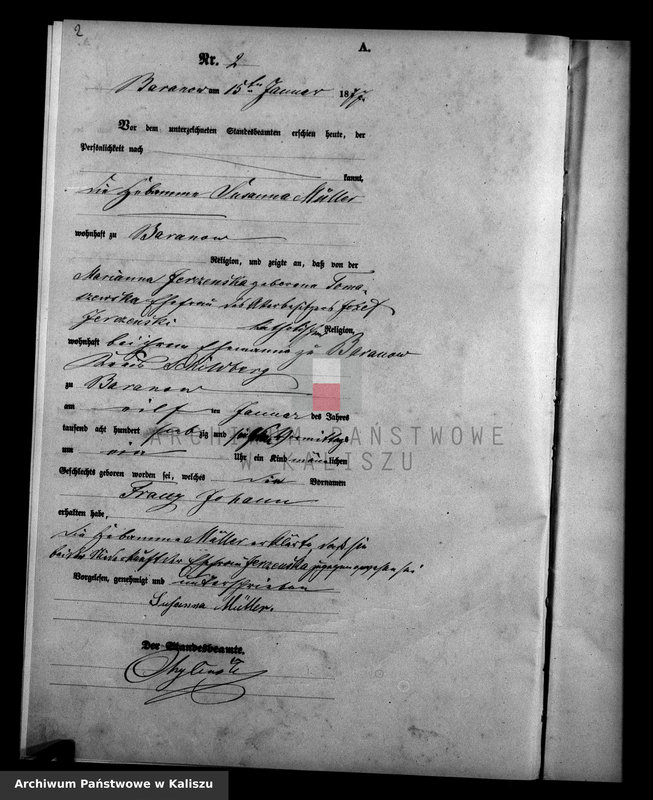 2
A.
Nr. 2
Baranow am 15ten Januar 1877.
Vor dem unterzeichneten Standesbeamten erschien heute, der
Persönlichkeit nach
kannt,
die Hebamme Susanna Müller
wohnhaft zu Baranow
Religion, und zeigte an, daß von der
Marianna Jerzenska geborene Toma-
szewska Ehefrau des Ackerbesitzers Josef
Jerzenski katholischer Religion,
wohnhaft bei ihrem Ehemanne zu Baranow
Kreis Schildberg
zu Baranow
am eilf ten Januar des Jahres
tausend acht hundert sieb zig und sieben Vormittags
um vier Uhr ein Kind männlichen
Geschlechts geboren worden sei, welches die Vornamen
Franz Johann
erhalten habe,
Die Hebamme Müller erklärte, daß sie
bei der Niederkunft der Ehefrau Jerzenska zugegen gewesen sei
Vorgelesen, genehmigt und unterschrieben
Susanna Müller.
Der Standesbeamte.
ARCHIWUM PAŃSTWOWE
W KALISZU
Archiwum Państwowe w Kaliszu